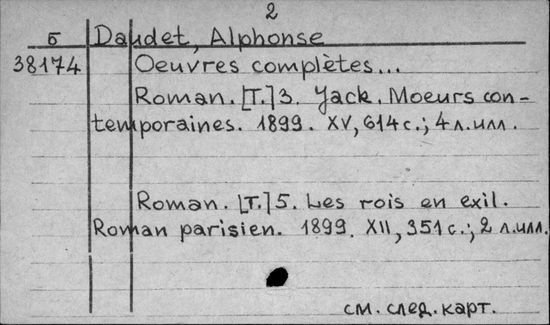 2
Б Daudet, Alphonse
38174 Oeuvres complètes...
Roman. [T.] 3. Jack. Moeurs con-
temporaines. 1899. XV, 614 с.; 4 л.илл.
Roman. [T.] 5. Les rois en exil.
Roman parisien. 1899. XII, 351 с.; 2 л.илл.
см. след. карт.